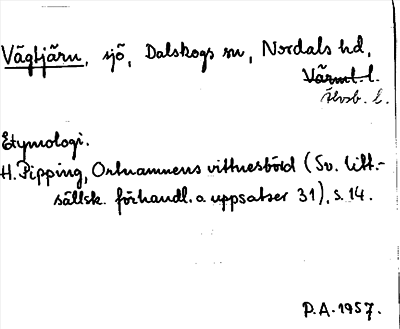 Vägtjärn, sjö, Dalskogs sn, Nordals hd,
Värml. l.
Älvsb. l.
Etymologi.
H. Pipping, Ortnamnens vittnesbörd (Sv. litt.-
sällsk. förhandl. o. uppsatser 31), s. 14.
P.A. 1957.